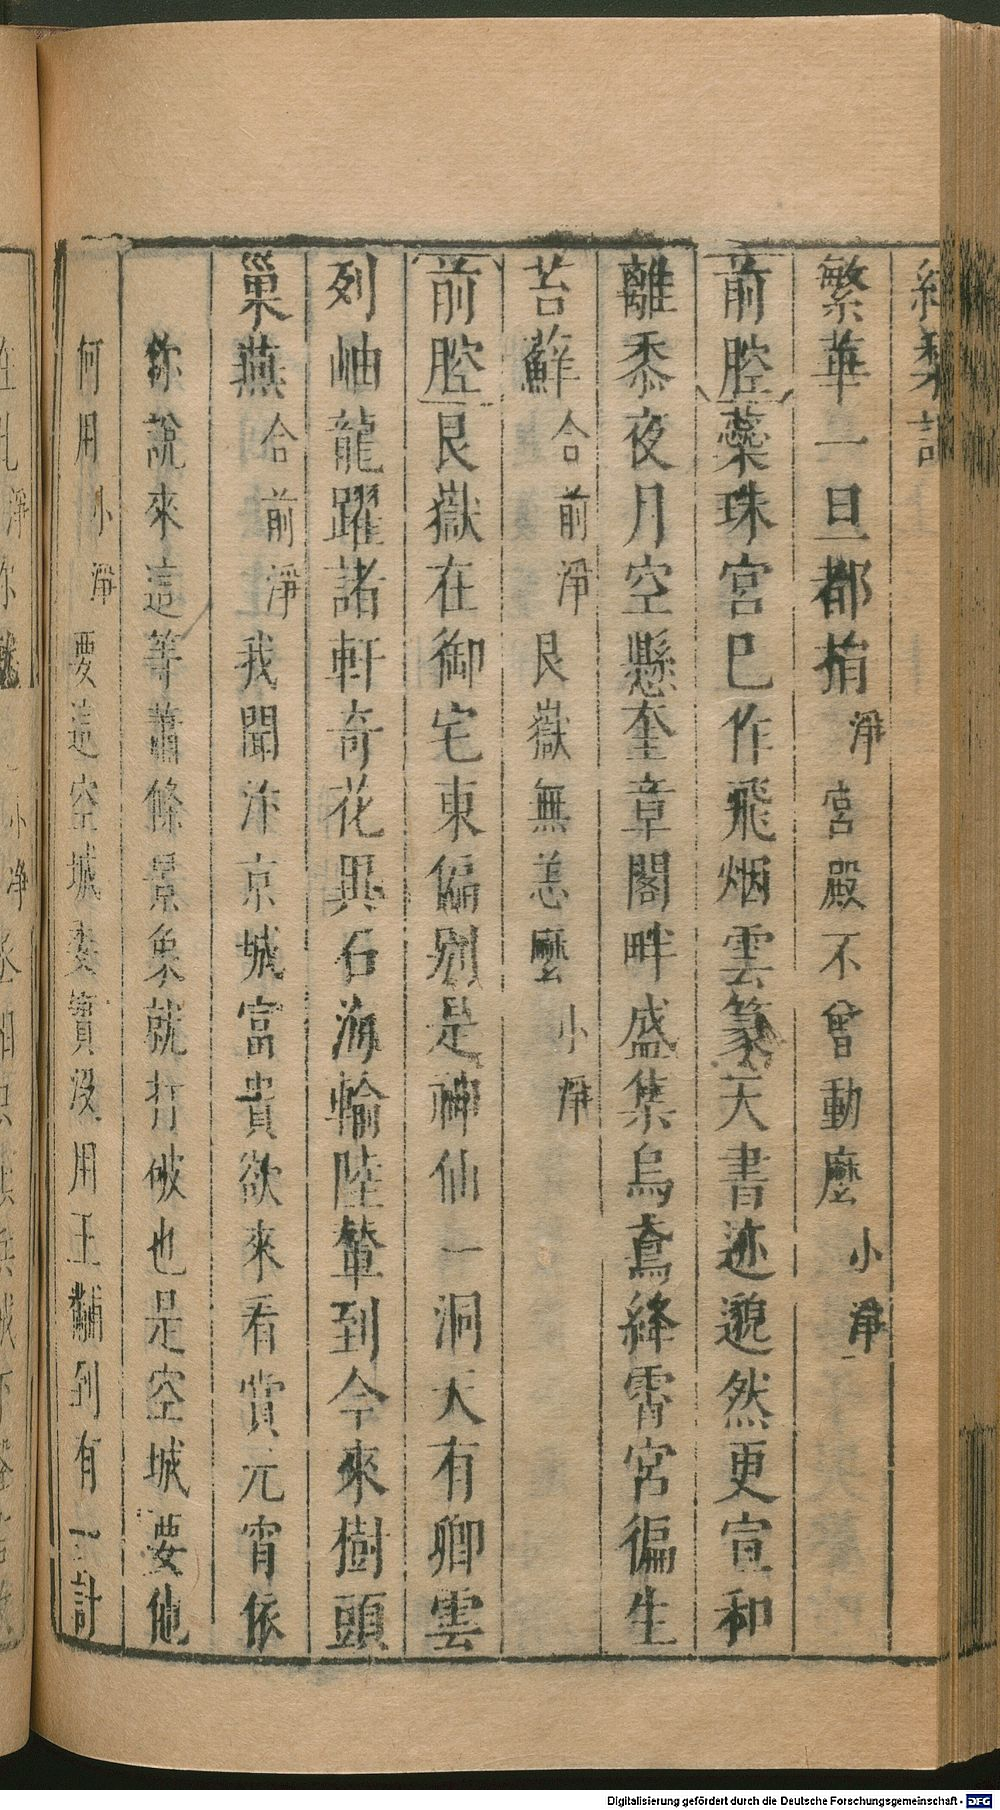 紅梨記
繁華一旦都捐淨宮殿不曾動麼小淨
前腔蘂珠宮已作飛烟雲篆天書迹邈然更宣和
離黍夜月空懸奎章閣畔盛集烏鳶絳霄宮徧生
苔蘚合前淨艮嶽無恙麼小淨
前腔艮嶽在御宅東偏剜是神仙一洞天有卿雲
列岫龍躍諸軒奇花異石海輸陸輦到今來樹頭
巢燕合前淨我聞汴京城富貴欲來看賞元宵依
你說來這等蕭條景象就打破也是空城要他
何用小淨要這空城委實没用王黼到有一計
Digitalisierung gefördert durch die Deutsche Forschungsgemeinschaft - DFG